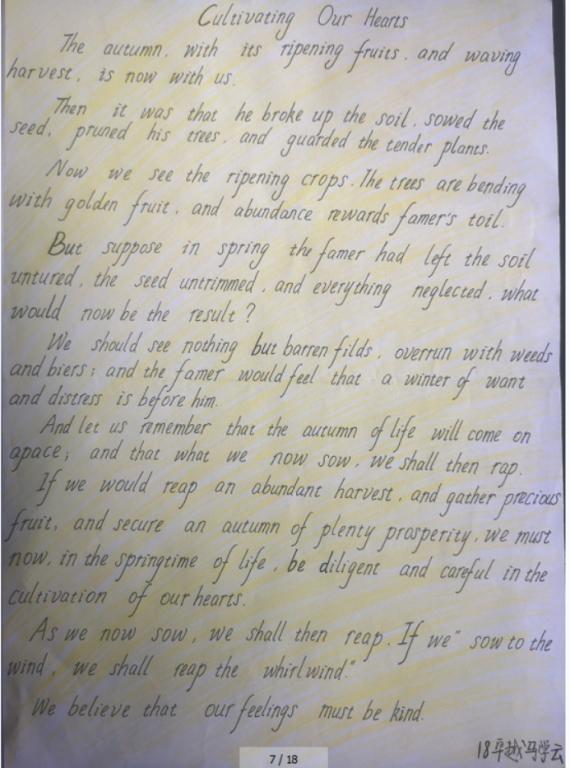 Cultivating Our Hearts
The autumn, with its ripening fruits, and waving
harvest, is now with us.
Then it was that he broke up the soil, sowed the
seed, pruned his trees, and guarded the tender plants.
Now we see the ripening crops. The trees are bending
with golden fruit, and abundance rewards famer's toil.
But suppose in spring the famer had left the soil
untured, the seed untrimmed, and everything neglected, what
would now be the result?
We should see nothing but barren filds, overrun with weeds
and biers; and the famer would feel that a winter of want
and distress is before him.
And let us remember that the autumn of life will come on
apace; and that what we now sow, we shall then rap.
If we would reap an abundant harvest, and gather precious
fruit, and secure an autumn of plenty prosperity, we must
now, in the springtime of life, be diligent and careful in the
cultivation of our hearts.
As we now sow, we shall then reap. If we" sow to the
wind, we shall reap the whirlwind."
We believe that our feelings must be kind.
7 / 18
18 冯学云